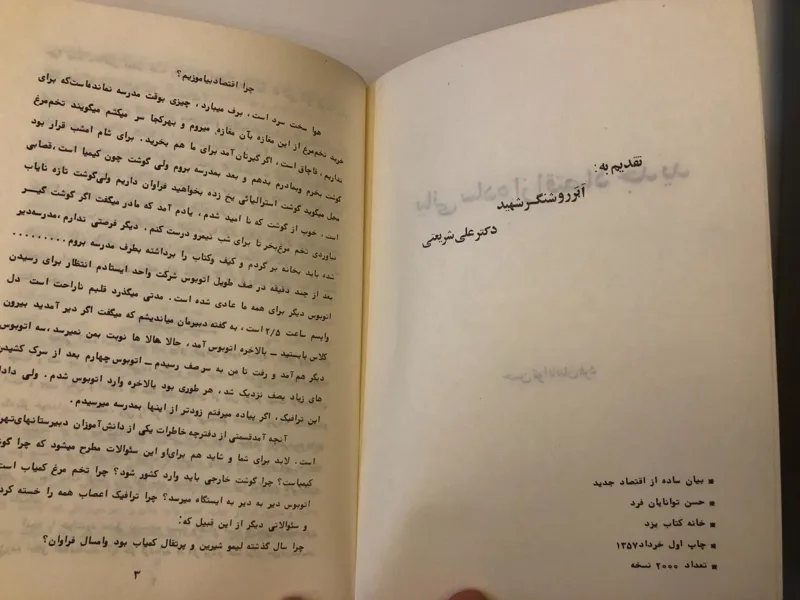 تقدیم به:
آبَر روشنگر شهید
دکتر علی شریعتی
بیان ساده از اقتصاد جدید
حسن توانایان فرد
خانه کتاب یزد
چاپ اول خرداد ۱۳۵۷
تعداد ۲۰۰۰ نسخه
چرا اقتصاد بیاموزیم؟
هوا سخت سرد است، برف میبارد، چیزی بوقت مدرسه نمانده‌است‌که برای
خرید تخم‌مرغ از این مغازه بآن مغازه میروم و بهرکجا سر میکشم میگویند تخم‌مرغ
نداریم، قاچاق است، اگر گیرتان‌آمد برای ما هم بخرید. برای شام امشب قرار بود
گوشت بخرم وبمادرم بدهم و بعد بمدرسه بروم ولی گوشت چون کیمیا است،قصابی
محل میگوید گوشت استرالیائی یخ زده بخواهید فراوان داریم ولی‌گوشت تازه نایاب
است. خوب از گوشت که نا امید شدم، یادم آمد که مادر میگفت اگر گوشت گیر
نیاوردی تخم مرغ‌بخر تا برای شب نیمرو درست کنم. دیگر فرصتی ندارم،مدرسه‌دیر
شده باید بخانه بر گردم و کیف وکتاب را برداشته بطرف مدرسه بروم..........
بعد از چند دقیقه در صف طویل اتوبوس شرکت واحد ایستادم انتظار برای رسیدن
اتوبوس دیگر برای همه ما عادی شده است. مدتی میگذرد قلبم ناراحت است دل
وایسم ساعت ۲/۵ است، به گفته دبیرمان میاندیشم که میگفت اگر دیر آمدید بیرون
کلاس بایستید ــ بالاخره اتوبوس آمد، حالا هالا ها نوبت بمن نمیرسد،سه اتوبوس
دیگر هم‌آمد و رفت تا من به سرصف رسیدم ــ اتوبوس‌چهارم بعد از سرک کشیدن
های زیاد بصف نزدیک شد، هر طوری بود بالاخره وارد اتوبوس شدم. ولی داداز
این ترافیک، اگر پیاده میرفتم زودتر از اینها بمدرسه میرسیدم.
آنچه آمدقسمتی از دفترچه خاطرات یکی از دانش‌آموزان دبیرستانهای‌تهر
است. لابد برای شما و شاید هم برای‌او این سئوالات مطرح میشود که چرا گو
کیمیاست؟ چرا گوشت خارجی باید وارد کشور شود؟ چرا تخم مرغ کمیاب است
اتوبوس دیر به دیر به ایستگاه میرسد؟ چرا ترافیک اعصاب همه را خسته کرد
و سئوالاتی دیگر از این قبیل که:
چرا سال گذشته لیمو شیرین و پرتقال کمیاب بود وامسال فراوان؟
۳